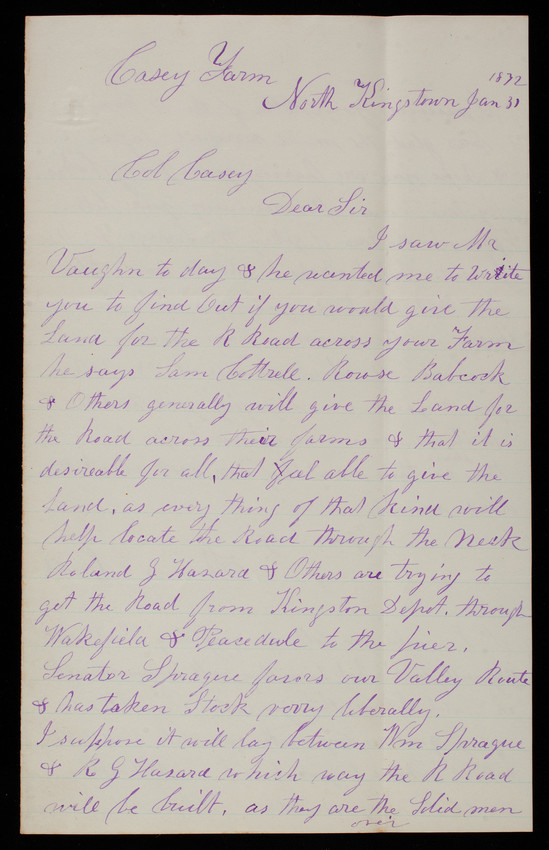 1872
Casey Farm
North Kingstown Jan 31
Col Casey
Dear Sir
I saw Mr
Vaughn to day & he wanted me to write
you to find out if you would give the
Land for the R Road across your Farm
he says Sam Cottrell. Rowse Babcock
& Others generally will give the Land for
the Road across their farms & that it is
desireable for all, that feel able to give the
Land, as every thing of that Kind will
help locate the Road through the Neck
Roland G Hazard & Others are trying to
get the Road from Kingston Depot. through
Wakefield & Peacedale to the pier.
Senator Sprague favors our Valley Route
& has taken Stock verry liberally.
I suppose it will lay between Wm Sprague
& R G Hasard which way the R Road
will be built. as they are the Solid men
over